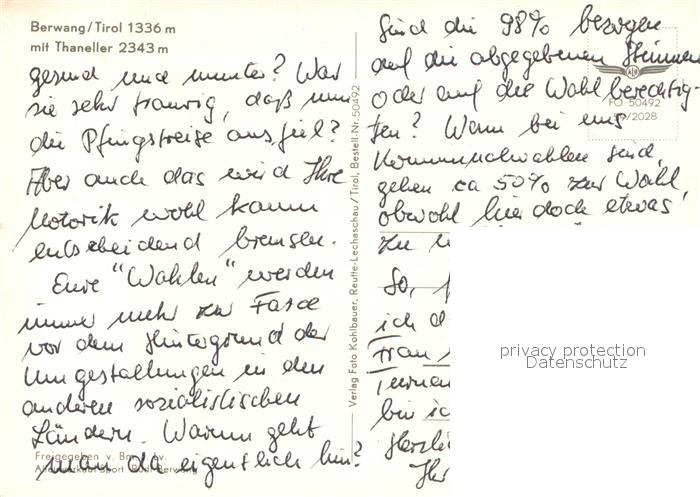 Berwang/Tirol 1336 m
mit Thaneller 2343 m
gesund und munter? War
sie sehr traurig, daß nun
die Pfingstreise ausfiel?
Aber auch das wird Ihre
Motorik wohl kaum
entscheidend bremsen.
Eure "Wahlen" werden
immer mehr zur Farce
vor dem Hintergrund der
Umgestaltungen in den
anderen sozialistischen
Ländern. Warum geht
man da eigentlich hin?
Freigegeben v. Bm. f. Lv.
Alleinverkauf Sport Rudi Berwang
Verlag Foto Kohlbauer, Reutte-Lechaschau/Tirol, Bestell-Nr. 50492
Sind die 98% bezogen
auf die abgegebenen Stimmen
oder auf die Wahlberechtig-
ten? Wenn bei uns
Kommunalwahlen sind,
gehen ca 50% zur Wahl,
obwohl hier doch etwas
zu
So,
ich d
Frau
bin ic
Herzli
FO 50492
59/2028
privacy protection
Datenschutz